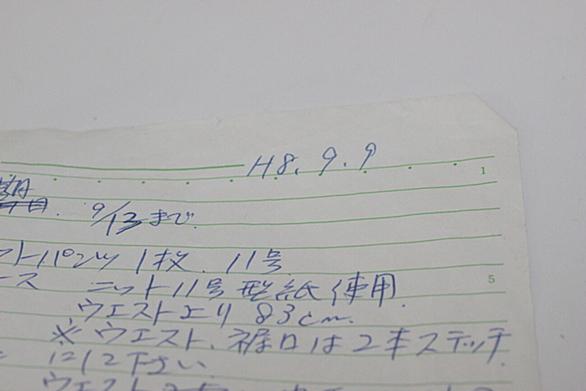 H8.9.9
1
期日. 9/13まで.
ットパンツ 1枚. 11号
5
ース ニット11号型紙使用.
ウエスト上り 83cm.
※ ウエスト、裾口は2本ステッチ
にして下さい.
ウエスト